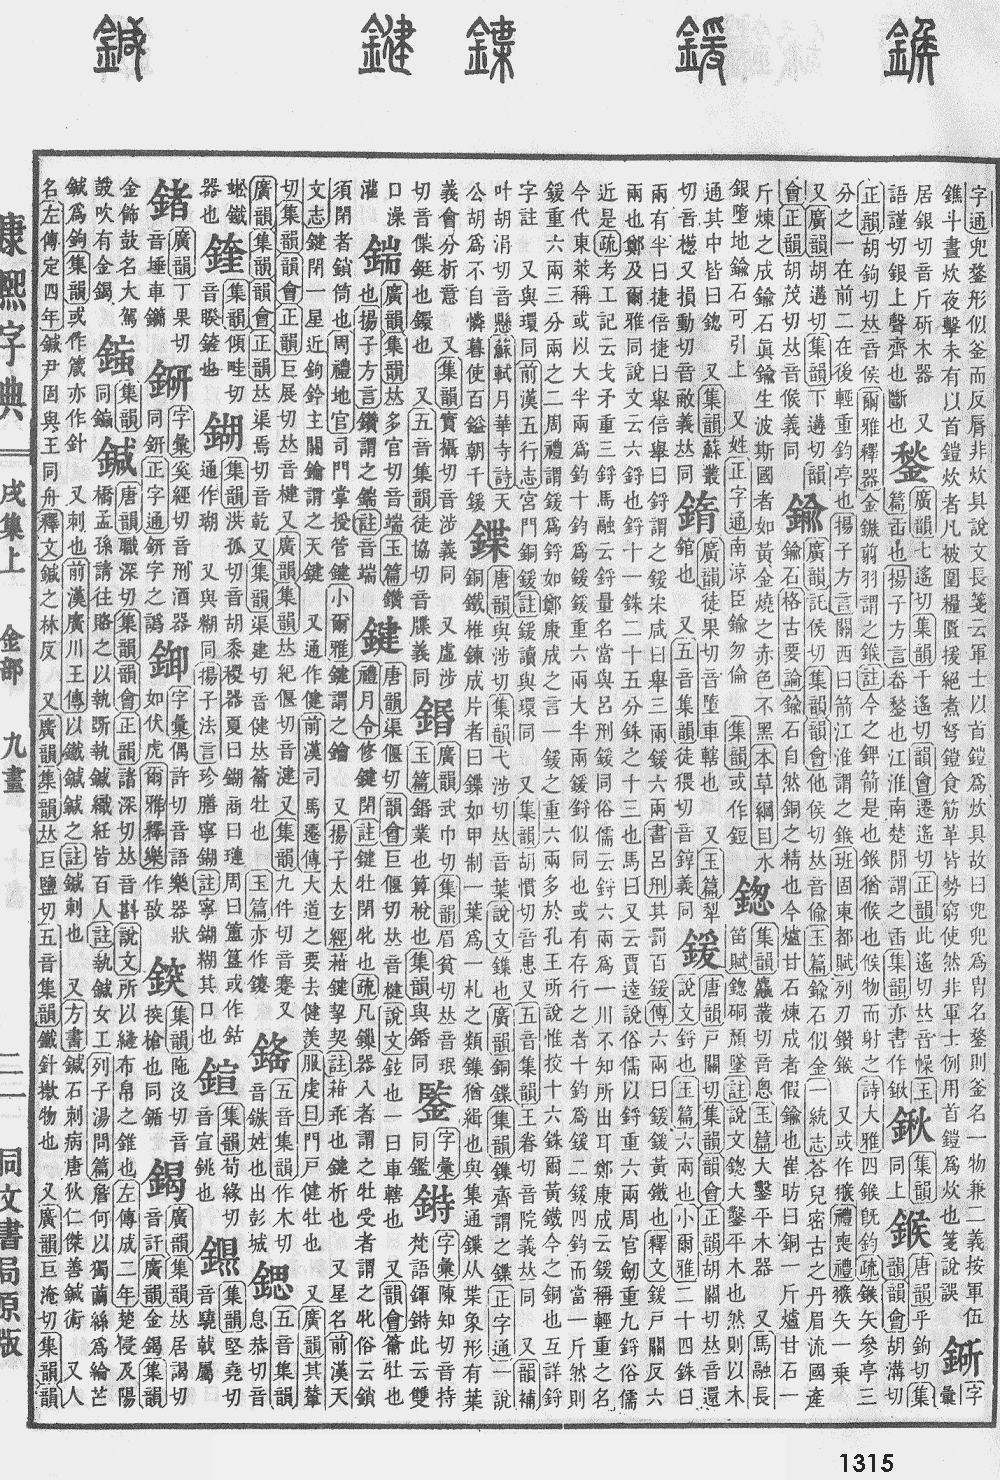 鍭
鍰
鍱
鍵
鍼
字通兜鍪形似釜而反脣非炊具說文長箋云軍士以首鎧為炊具故曰兜兜為冑名鍪則釜名一物兼二義按軍伍
鐎斗晝炊夜擊未有以首鎧炊者凡被圍糧匱援絕煮弩鎧食筋革皆勢窮使然非軍士例用首鎧為炊也箋說誤
字彙
居銀切音斤斫木器 又
語謹切銀上聲齊也斷也
鍫
廣韻七遙切集韻千遙切韻會遷遙切正韻此遙切𠀤音幧玉
篇臿也揚子方言臿鍫也江淮南楚閒謂之臿集韻亦書作鍬
鍬
集韻同上
鍭
唐韻乎鉤切集韻韻會胡溝切
正韻胡鉤切𠀤音侯爾雅釋器金鏃翦羽謂之鍭註今之錍箭是也鍭猶候也候物而射之詩大雅四鍭旣鈞疏鍭矢參亭三
分之一在前二在後輕重鈞亭也揚子方言關西曰箭江淮謂之鍭班固東都賦列刃鑽鍭 又或作猴禮喪禮猴矢一乘
又廣韻胡遘切集韻下遘切韻
會正韻胡茂切𠀤音候義同
鍮
廣韻託侯切集韻韻會他侯切𠀤音偷玉篇鍮石似金一統志荅兒密古之丹眉流國產
鍮石格古要論鍮石自然銅之精也今爐甘石煉成者假鍮也崔昉曰銅一斤爐甘石一
斤煉之成鍮石眞鍮生波斯國者如黃金燒之赤色不黑本草綱目水
銀墮地鍮石可引上 又姓正字通南涼臣鍮勿倫 集韻或作鋀
鍯
集韻麤叢切音悤玉篇大鑿平木器 又馬融長
笛賦鍯硐隤墜註說文鍯大鑿平木也然則以木
通其中皆曰鍯 又集韻蘇叢
切音檧又損動切音敵義𠀤同
鍺
廣韻徒果切音墮車轄也 又玉篇犁
錧也 又五音集韻徒猥切音錞義同
鍰
唐韻戸關切集韻韻會正韻胡關切𠀤音還
說文鋝也玉篇六兩也小爾雅二十四銖曰
兩有半曰捷倍捷曰舉倍舉曰鋝謂之鍰宋咸曰舉三兩鍰六兩書呂刑其罰百鍰傳六兩曰鍰鍰黃鐵也釋文鍰戸關反六
兩也鄭及爾雅同說文云六鋝也鋝十一銖二十五分銖之十三也馬曰又云賈逵說俗儒以鋝重六兩周官劒重九鋝俗儒
近是疏考工記云戈矛重三鋝馬融云鋝量名當與呂刑鍰同俗儒云鋝六兩為一川不知所出耳鄭康成云鍰稱輕重之名
今代東萊稱或以大半兩為鈞十鈞為鍰鍰重六兩大半兩鍰鋝似同也或有存行之者十鈞為鍰二鍰四鈞而當一斤然則
鍰重六兩三分兩之二周禮謂鍰為鋝如鄭康成之言一鍰之重六兩多於孔王所說惟挍十六銖爾黃鐵今之銅也互詳鋝
字註 又與環同前漢五行志宮門銅鍰註鍰讀與環同 又集韻胡慣切音患又五音集韻王眷切音院義𠀤同 又韻補
叶胡涓切音懸蘇軾月華寺詩天
公胡為不自憐暮使百鎰朝千鍰
鍱
唐韻與涉切集韻弋涉切𠀤音葉說文鏶也廣韻銅鍱集韻鏶齊謂之鍱正字通一說
銅鐵椎鍊成片者曰鍱如甲制一葉為一札之類鏶猶緝也與集通鍱从枼葉象形有葉
義會分析意 又集韻實攝切音涉義同 又虛涉
切音偞鋌也鐶也 又五音集韻徒協切音牒義同
鍲
廣韻武巾切集韻眉貧切𠀤音珉
玉篇鍲業也算稅也集韻與錉同
鍳
字彙同鑑
鉜
字彙陳知切音持
梵語鍕鉜此云雙
口澡
灌
鍴
廣韻集韻𠀤多官切音端玉篇鑽
也揚子方言鑽謂之鍴註音端
鍵
唐韻渠偃切韻會巨偃切𠀤音楗說文鉉也 一曰車轄也 又韻會籥牡也
禮月令修鍵閉註鍵牡閉牝也疏凡鏁器入者謂之牡受者謂之牝俗云鎖
須閉者鎖筒也周禮地官司門掌授管鍵小爾雅鍵謂之鑰 又揚子太玄經藉鍵挈契註藉乖也鍵析也 又星名前漢天
文志鍵閉一星近鉤鈐主關鑰謂之天鍵 又通作健前漢司馬遷傳大道之要去健羨服虔曰門戸健牡也 又廣韻其輦
切集韻韻會正韻巨展切𠀤音楗又廣韻集韻𠀤紀偃切音湕又集韻九件切音蹇又
廣韻集韻韻會正韻𠀤渠焉切音乾又集韻渠建切音健𠀤籥牡也 玉篇亦作鑳
鍷
鍸
集韻洪孤切音胡黍稷器夏曰鍸商曰璉周曰簠簋或作䥊
通作瑚 又與糊同揚子法言珍膳寧鍸註寧鍸糊其口也
鍹
集韻荀緣切
音宣銚也
鍶
五音集韻
息恭切音
鍺
廣韻丁果切
音埵車鐗
鈃
字彙奚經切音刑酒器
同鈃正字通鈃字之譌
鋙
字彙偶許切音語樂器狀
如伏虎爾雅釋樂作敔
鍥
集韻陁沒切音
揬槍也同鍎
鍻
廣韻集韻𠀤居謁切
音訐廣韻金鍻集韻
金飾鼓名大駕
鼓吹有金鍻
集韻
同鎰
鍼
唐韻職深切集韻韻會正韻諸深切𠀤音斟說文所以縫布帛之錐也左傳成二年楚侵及陽
橋孟孫請往賂之以執斲執鍼織紝皆百人註執鍼女工列子湯問篇詹何以獨繭絲為綸芒
鍼為鉤集韻或作箴亦作針 又刺也前漢廣川王傳以鐵鍼鍼之註鍼刺也 又方書鍼石刺病唐狄仁傑善鍼術 又人
名左傳定四年鍼尹固與王同舟釋文鍼之林反 又廣韻集韻𠀤巨鹽切五音集韻鐵針撳物也 又廣韻巨淹切集韻韻
康熙字典
戌集上 金部 九畫
二一
同文書局原版
1315